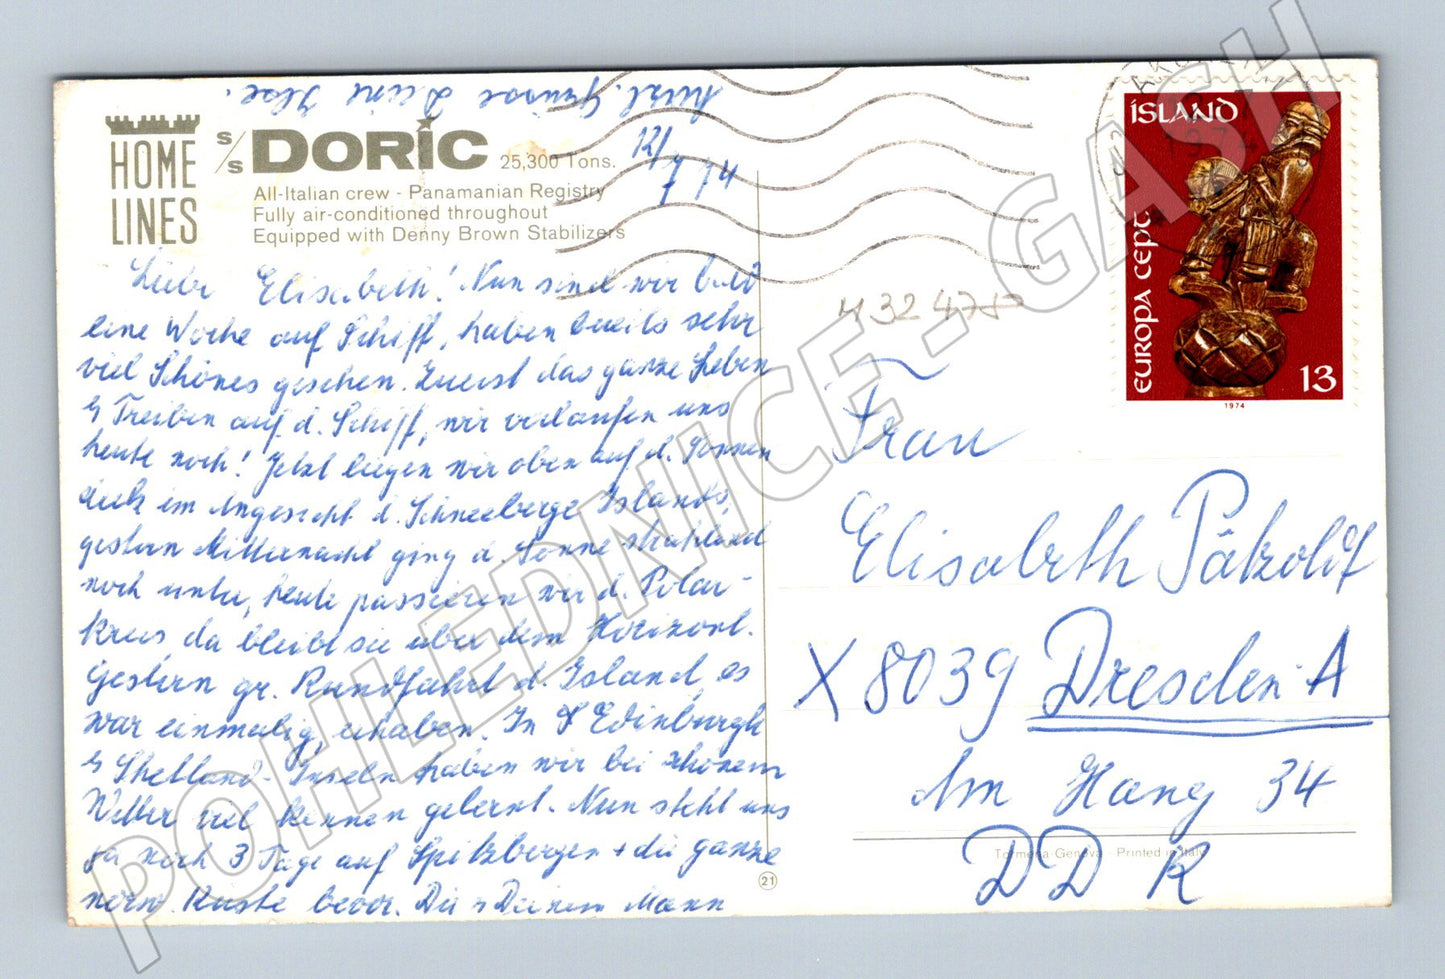 HOME
LINES
s/s DORIC 25,300 Tons.
All-Italian crew - Panamanian Registry
Fully air-conditioned throughout
Equipped with Denny Brown Stabilizers
12/7 74
Liebe Elisabeth! Nun sind wir bald
eine Woche auf Schiff, haben bereits sehr
viel Schönes gesehen. Zuerst das ganze Leben
u Treiben auf d. Schiff, wir verlaufen uns
heute noch! Jetzt liegen wir oben auf d. Sonnen
deck im Angesicht d. Schneeberge Islands,
gestern Mitternacht ging d. Sonne strahlend
noch unter, heute passieren wir d. Polar-
kreis, da bleibt sie über dem Horizont.
Gestern gr. Rundfahrt d. Island, es
war einmalig, erhaben. In Edinburgh
u Shetland-Inseln haben wir bei schönem
Wetter viel kennen gelernt. Nun steht uns
ja noch 3 Tage auf Spitzbergen + die ganze
norw. Küste bevor. Dir u Deinem Mann
herzl. Grüsse Deine Ilse.
ÍSLAND
EUROPA CEPT
13
1974
Frau
Elisabeth Pätzold
X 8039 Dresden-A
Am Hang 34
DDR
Tormena-Genova - Printed in Italy
21
POHLEDNICE - GASH